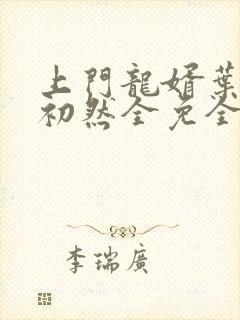 上門龍婿葉
初然全免全
李瑞廣